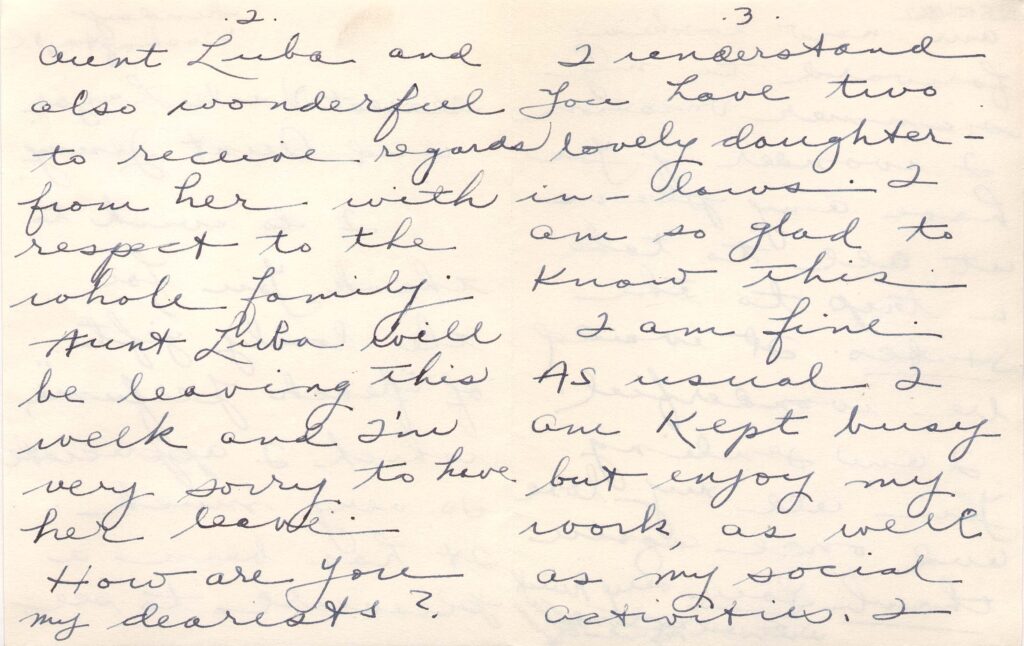 .2.
Aunt Luba and
also wonderful
to receive regards
from her with
respect to the
whole family.
Aunt Luba will
be leaving this
week and I'm
very sorry to have
her leave.
How are you
my dearests?
.3.
I understand
you have two
lovely daughter-
in-laws. I
am so glad to
know this.
I am fine.
As usual I
am kept busy
but enjoy my
work, as well
as my social
activities. I